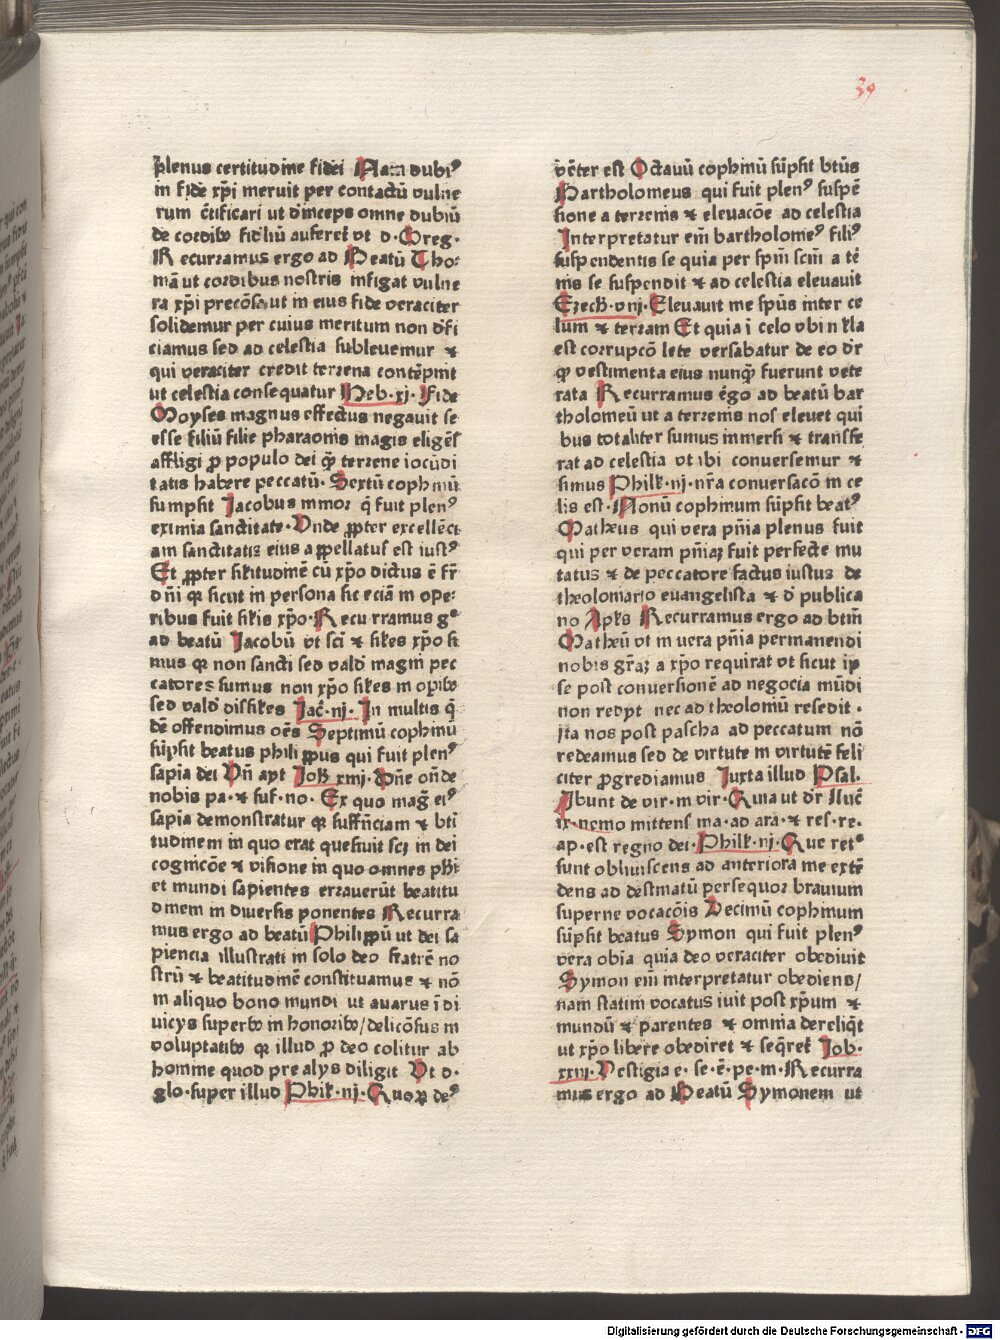 39
plenus certitudine fidei Nam dubiꝰ
in fidē xp̄i meruit per contactū vulne
rum c̄tificari ut d̓inceps omne dubiū
de cordibꝫ fid̓liū auferet̄ vt d· Greg·
Recurramus ergo ad Beatū Tho-
mā ut cordibus nostris infigat vulne
ra xp̄i precōsa ut in eius fide veraciter
solidemur per cuius meritum non d̓fi
ciamus sed ad celestia subleuemur ⁊
qui veraciter credit terrena contēpnit
ut celestia consequatur Heb·xj· Fide
Moyses magnus effectus negauit se
esse filiū filie pharaonis magis eligēs
affligi ꝓ populo dei q̄ꝫ terrene iocūdi
tatis habere peccatū· Sextū cophinū
sumpsit Jacobus minor q̄ fuit plenꝰ
eximia sanctitate· Vnde ꝓpter excellēci
am sanctitatis eius appellatus est iustꝰ
Et ꝓpter silitudinē cū xp̄o dictus ē fr̄
dn̄i qꝫ sicut in persona sic eciā in ope-
ribus fuit silis xp̄o· Recurramus gͦ
ad beatū Jacobū vt sc̄i ⁊ siles xp̄o si
mus qꝫ non sancti sed vald̓ magni pec
catores sumus non xp̄o siles in opibꝫ
sed vald̓ dissiles Jac̄·iij· In multis q̄
dē offendimus oēs Septimū cophinū
sūpsit beatus philippus qui fuit plenꝰ
sapia dei Vn̄ ayt Joh̄ xiiij· Dn̄e on̄de
nobis pa·⁊ suf·no· Ex quo mag̓ eiꝰ
sapia demonstratur qꝫ suffn̄ciam ⁊ bti
tudinem in quo erat quesiuit scꝫ in dei
cognicōe ⁊ visione in quo omnes phi
et mundi sapientes errauerūt beatitu
dinem in diuersis ponentes Recurra
mus ergo ad beatū Philippū ut dei sa
piencia illustrati in solo deo fratrē no
strū ⁊ beatitudinē constituamus ⁊ nō
in aliquo bono mundi ut auarus ī di
uicijs superbꝫ in honoribꝫ/delicōsus in
voluptatibꝫ qꝫ illud ꝓ deo colitur ab
homme quod pre alijs diligit Vt d·
glo·super illud Phil̄·iij· Quoꝝ deꝰ
vēter est Octauū cophinū sūpsit btūs
Bartholomeus qui fuit plenꝰ suspē
sione a terrenis ⁊ eleuacōe ad celestia
Interpretatur em̄ bartholomeꝰ filiꝰ
suspendentis se quia per spm̄ scm̄ a tē
nis se suspendit ⁊ ad celestia eleuauit
Ezech·viij· Eleuauit me spūs inter ce
lum ⁊ terram Et quia ī celo vbi n̄ lla
est corrupcō lete versabatur de eo d̄r
qꝫ vestimenta eius nunqꝫ fuerunt vete
rata Recurramus ēgo ad beatū bar
tholomeū ut a terrenis nos eleuet qui
bus totaliter sumus immersi ⁊ transfe
rat ad celestia vt ibi conuersemur ⁊
simus Phil̄·iij· nr̄a conuersacō in ce
lis est· Nonū cophinum sūpsit beatꝰ
Matheus qui vera pn̄ia plenus fuit
qui per veram pn̄iaꝫ fuit perfecte mu
tatus ⁊ de peccatore factus iustus de
theoloniario euangelista ⁊ d̓ publica
no Apl̄s Recurramus ergo ad btm̄
Matheū vt in vera pn̄ia permanendi
nobis gr̄aꝫ a xp̄o requirat vt sicut ip̄
se post conuersionē ad negocia mūdi
non redijt nec ad theoloniū resedit ·
Ita nos post pascha ad peccatum nō
redeamus sed de virtute in virtutē feli
citer ꝓgrediamus Juxta illud Psal·
Ibunt de vir·in vir· Quia ut d̄r Luc̄
ix· nemo mittens ma·ad ara·⁊ res·re·
ap·est regno dei· Phil̄·iij· Que retꝰ
sunt obliuiscens ad anteriora me extē
dens ad destinatū persequor brauium
superne vocacōis Decimū cophinum
sūpsit beatus Symon qui fuit plenꝰ
vera obia quia deo veraciter obediuit
Symon em̄ interpretatur obediens/
nam statim vocatus iuit post xp̄um ⁊
mundū ⁊ parentes ⁊ omnia dereliq̄t
ut xp̄o libere obediret ⁊ seq̄ret̄ Job·
xxiij· Vestigia e·se·ē·pe·m· Recurra
mus ergo ad Beatū Symonem ut
Digitalisierung gefördert durch die Deutsche Forschungsgemeinschaft - DFG